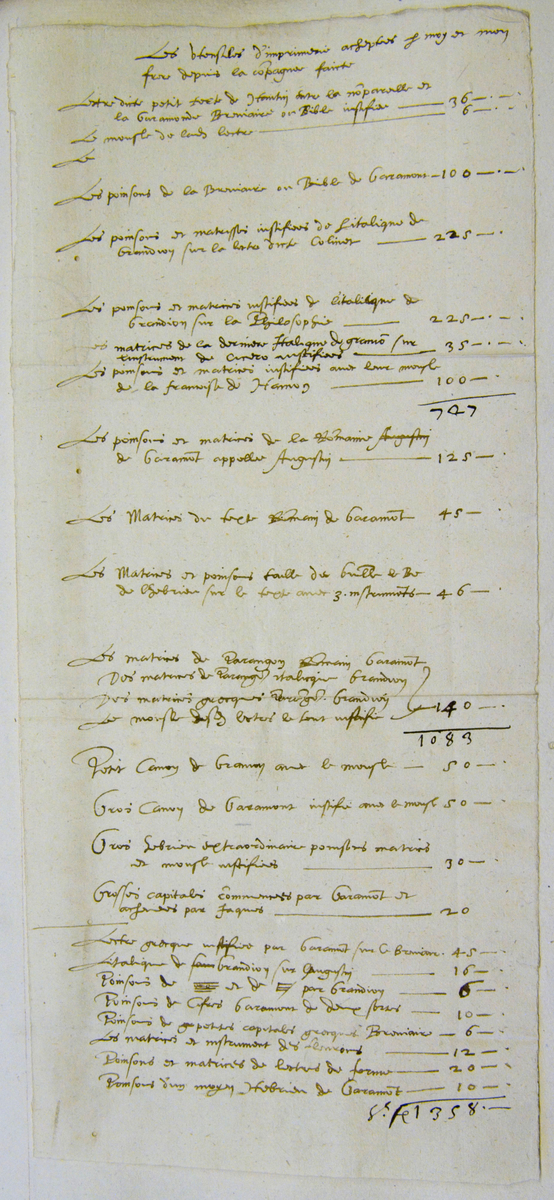 Les Vtensiles d'imprimerie acheptees p moy et mon
frere depuis la cõpagnie faicte
Lettre dicte petit texte de Hautin entre la nõpareille et
la Garamonde Breviaire ou Bible iustifiee — 36 —
Le mousle de lad lectre — 6 —
Le
Les poinsons de la Breviaire ou Bible de Garamont — 100 —
Les poinsons et matrisses iustifiees de litalique de
Grandion sur la letre dicte Colinet — 225 —
Les poinsons et matrices iustifiees de litalique de
Grandion sur la Philosophie — 225 —
Les matrices de la derniere Italique de graniõ sur
linstrument de Cicero iustifiees — 35 —
Les poinsons et matrices iustifiees avec leur mousle
de la francoise de Hamon — 100 —
747
Les poinsons et matrices de la Romaine Augustin
de Garamõt appellee Augustin — 125 —
Les Matrices du texte Romain de Garamõt 45 —
Les Matrices et poinsons taille de Guille le Be
de lhebrieu sur le texte avec 3. instrumẽts — 46 —
Les matrices de Parangon Romain Garamõt
Des matrices de Parangõ italique Grandion
Des matrices grecques Parangõ Grandion
Le mousle desd lectres le tout iustifie — 140 —
1083
Petit Canon de Granion avec le mousle — 50 —
Gros Canon de Garamont iustifie avec le mousle 50 —
Gros hebrieu extraordinaire poinsons matrices
et mousle iustifiees — 30 —
Grosses capitales cõmencees par Garamõt et
achevees par Jaques — 20
Lectre grecque iustifiee par Garamõt sur le Breviaire 45 —
Litalique de Grandion sur Augustin — 16 —
Poinsons de et de par Grandion — 6 —
Poinsons de Garamont de deux sortes — 10 —
Poinsons de petites capitales grecques Breviaire — 6 —
Les matrices et instrument des fleurons — 12 —
Poinsons et matrices de lectres de forme — 20 —
Poinsons dung moyen Hebrieu de Garamõt — 10 —
1358 —